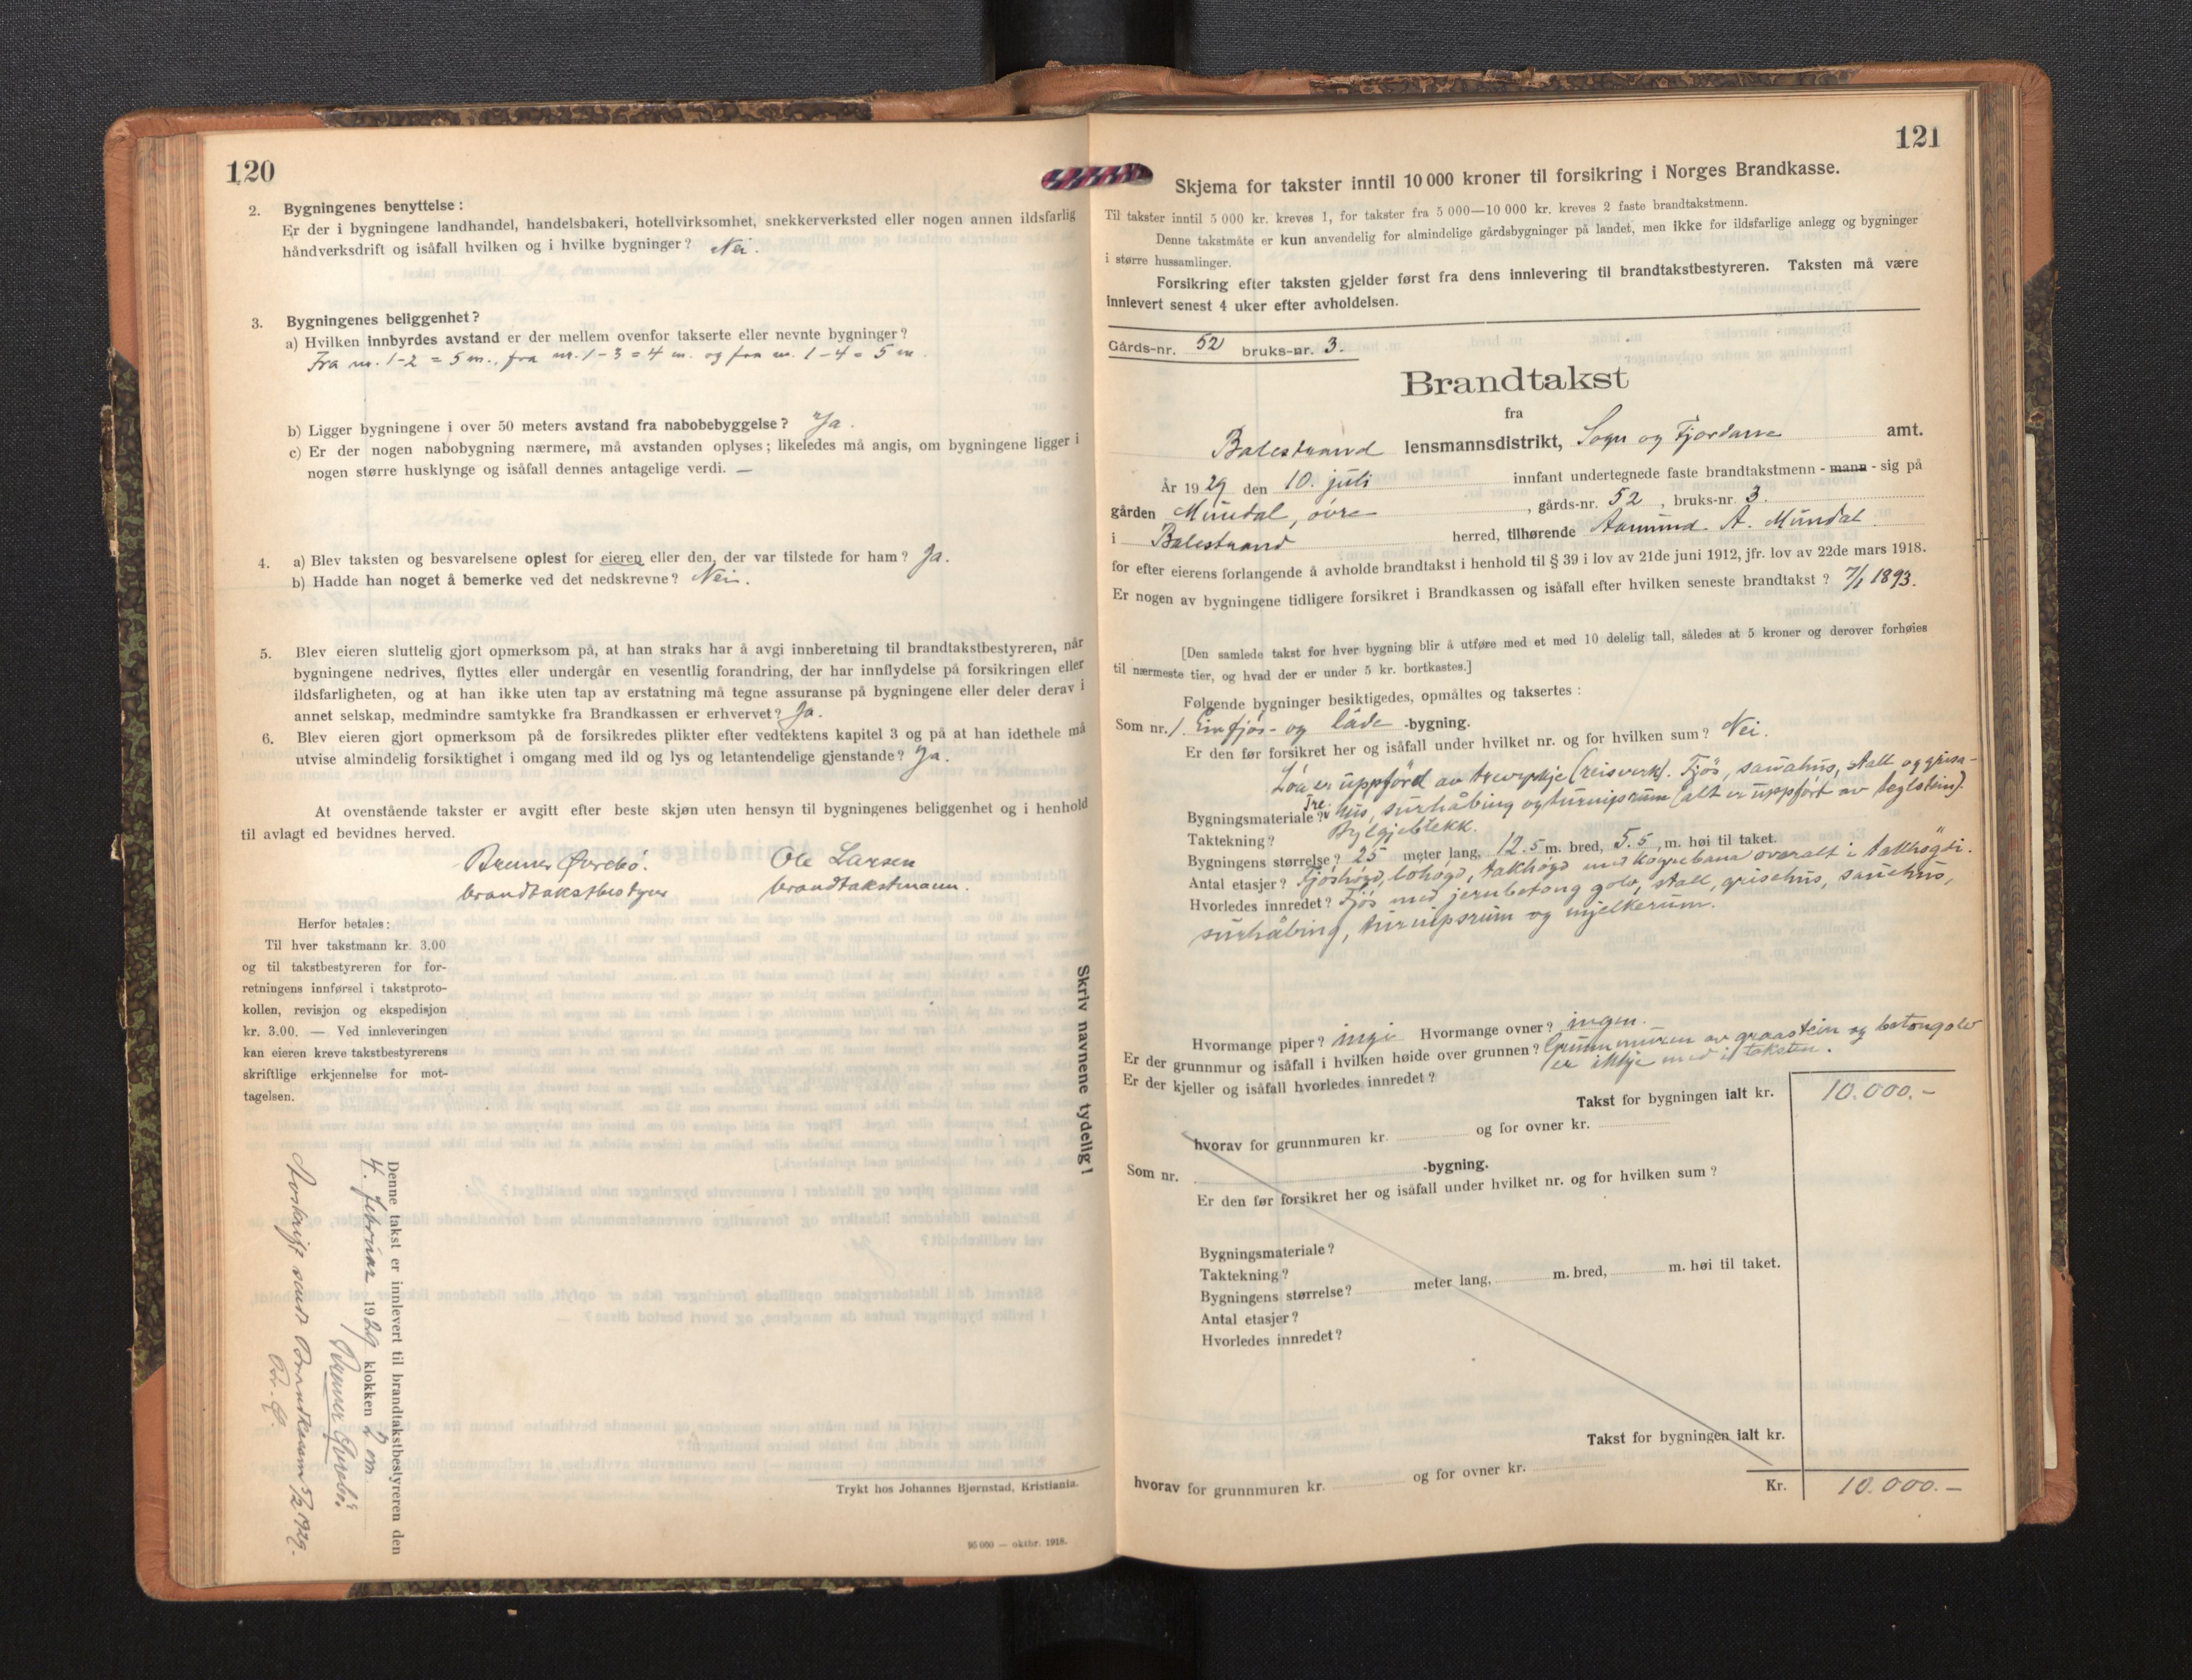 120
2. Bygningenes benyttelse:
Er der i bygningene landhandel, handelsbakeri, hotellvirksomhet, snekkerverksted eller nogen annen ildsfarlig
håndverksdrift og isåfall hvilken og i hvilke bygninger? Nei.
3. Bygningenes beliggenhet?
a) Hvilken innbyrdes avstand er der mellem ovenfor takserte eller nevnte bygninger?
Fra nr. 1-2 = 5 m., fra nr. 1-3 = 4 m. og fra nr. 1-4 = 5 m.
b) Ligger bygningene i over 50 meters avstand fra nabobebyggelse? Ja.
c) Er der nogen nabobygning nærmere, må avstanden oplyses; likeledes må angis, om bygningene ligger i
nogen større husklynge og isåfall dennes antagelige verdi. —
4. a) Blev taksten og besvarelsene oplest for eieren eller den, der var tilstede for ham? Ja.
b) Hadde han noget å bemerke ved det nedskrevne? Nei.
5. Blev eieren sluttelig gjort opmerksom på, at han straks har å avgi innberetning til brandtakstbestyreren, når
bygningene nedrives, flyttes eller undergår en vesentlig forandring, der har innflydelse på forsikringen eller
ildsfarligheten, og at han ikke uten tap av erstatning må tegne assuranse på bygningene eller deler derav i
annet selskap, medmindre samtykke fra Brandkassen er erhvervet? Ja.
6. Blev eieren gjort opmerksom på de forsikredes plikter efter vedtektens kapitel 3 og på at han idethele må
utvise almindelig forsiktighet i omgang med ild og lys og letantendelige gjenstande? Ja.
At ovenstående takster er avgitt efter beste skjøn uten hensyn til bygningenes beliggenhet og i henhold
til avlagt ed bevidnes herved.
Bremer Øvrebö. Ole Larsen
brandtakstbestyrer brandtakstmann.
Herfor betales:
Til hver takstmann kr. 3.00
og til takstbestyreren for for-
retningens innførsel i takstproto-
kollen, revisjon og ekspedisjon
kr. 3.00. — Ved innleveringen
kan eieren kreve takstbestyrerens
skriftlige erkjennelse for mot-
tagelsen.
Denne takst er innlevert til brandtakstbestyreren den
4. februar 1929 klokken 2 em.
Bremer Øvrebö.
Avskrift sendt Brandkassen 5/2 1929.
Br. Ø.
Skriv navnene tydelig!
Trykt hos Johannes Bjørnstad, Kristiania.
95 000 — oktbr. 1918.
121
Skjema for takster inntil 10 000 kroner til forsikring i Norges Brandkasse.
Til takster inntil 5 000 kr. kreves 1, for takster fra 5 000—10 000 kr. kreves 2 faste brandtakstmenn.
Denne takstmåte er kun anvendelig for almindelige gårdsbygninger på landet, men ikke for ildsfarlige anlegg og bygninger
i større hussamlinger.
Forsikring efter taksten gjelder først fra dens innlevering til brandtakstbestyreren. Taksten må være
innlevert senest 4 uker efter avholdelsen.
Gårds-nr. 52 bruks-nr. 3.
Brandtakst
fra
Balestrand lensmannsdistrikt, Sogn og Fjordane amt.
År 1929 den 10. juli innfant undertegnede faste brandtakstmenn - mann - sig på
gården Mundal, øvre, gårds-nr. 52, bruks-nr. 3.
i Balestrand herred, tilhørende Aamund A. Mundal.
for efter eierens forlangende å avholde brandtakst i henhold til § 39 i lov av 21de juni 1912, jfr. lov av 22de mars 1918.
Er nogen av bygningene tidligere forsikret i Brandkassen og isåfall efter hvilken seneste brandtakst? 7/1 1893.
[Den samlede takst for hver bygning blir å utføre med et med 10 delelig tall, således at 5 kroner og derover forhøies
til nærmeste tier, og hvad der er under 5 kr. bortkastes.]
Følgende bygninger besiktigedes, opmåltes og taksertes:
Som nr. 1 Ein fjøs- og låde -bygning.
Er den før forsikret her og isåfall under hvilket nr. og for hvilken sum? Nei.
Löa er uppförd av treverkje (reisverk). Fjös, sauahus, stall og grisa-
Bygningsmateriale? Tre. hus, surhåbing og turnipsrum (alt er uppfört av teglstein).
Taktekning? Bylgjeblekk.
Bygningens størrelse? 25 meter lang, 12.5 m. bred, 5.5, m. høi til taket.
Antal etasjer? Fjöshögd, löhögd, takhögd med högrebana overalt i takhögdi.
Hvorledes innredet? Fjös med jernbetong golv, stall, grisehus, sauehus,
surhåbing, turnipsrum og mjelkerum.
Hvormange piper? ingi Hvormange ovner? ingen.
Er der grunnmur og isåfall i hvilken høide over grunnen? Grunnmuren av graastein og betongolv
er ikkje med i taksten.
Er der kjeller og isåfall hvorledes innredet?
Takst for bygningen ialt kr. 10.000.-
hvorav for grunnmuren kr. og for ovner kr.
Som nr. -bygning.
Er den før forsikret her og isåfall under hvilket nr. og for hvilken sum?
Bygningsmateriale?
Taktekning?
Bygningens størrelse? meter lang, m. bred, m. høi til taket.
Antal etasjer?
Hvorledes innredet?
Takst for bygningen ialt kr.
hvorav for grunnmuren kr. og for ovner kr.
Kr. 10.000.-